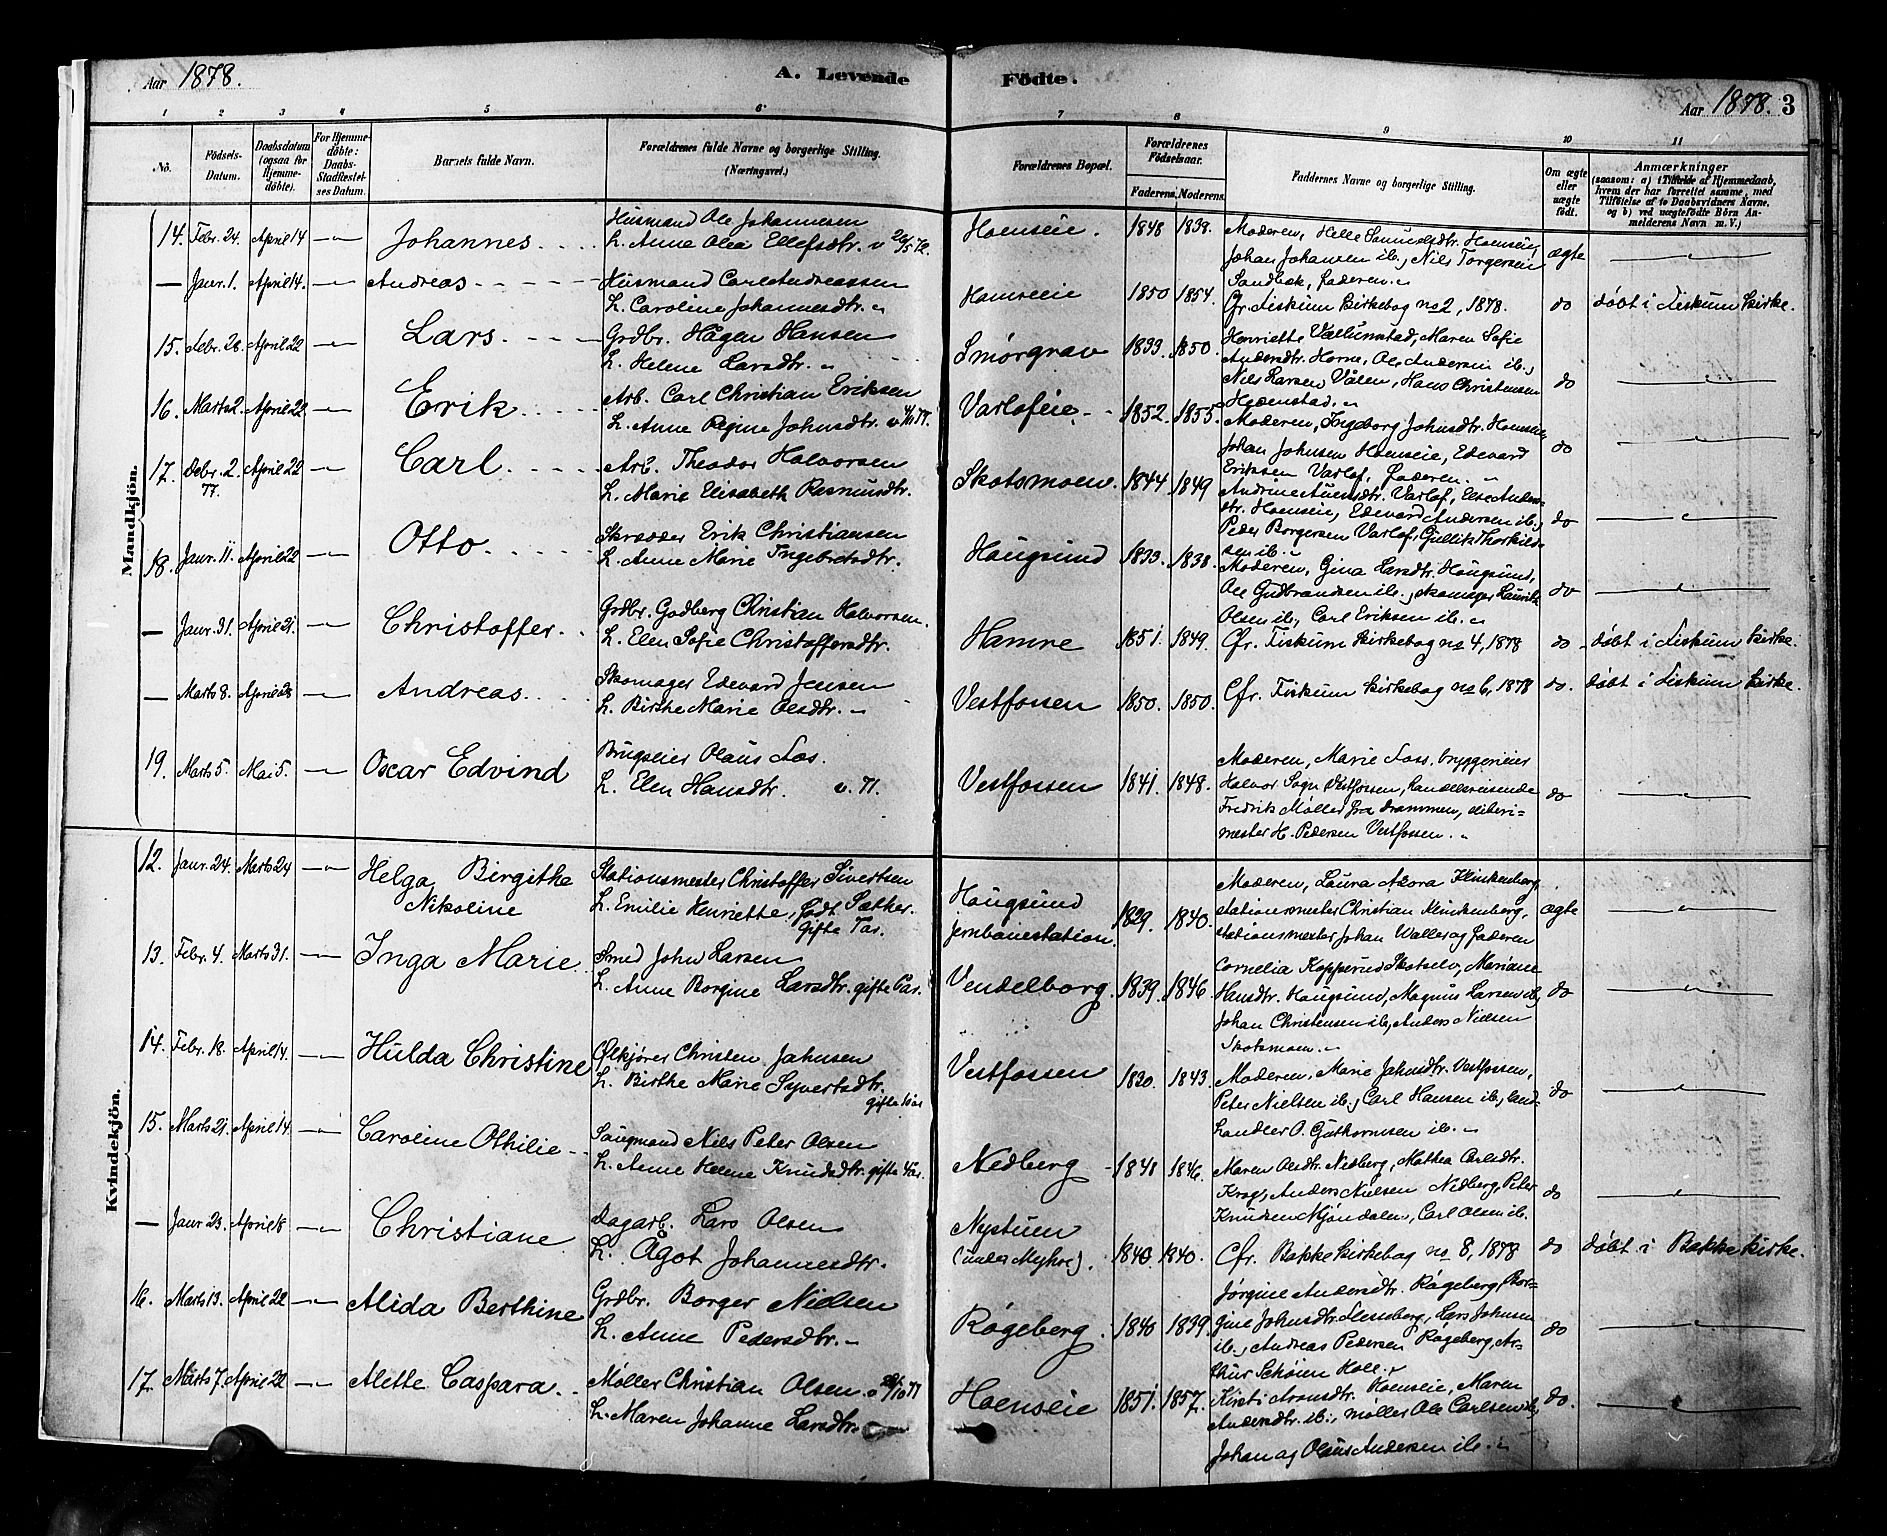 Aar 1878. A. Levende Födte. Aar 1878. 3
1 2 3 4 5 6 7 8 9 10 11
No. Födsels-Datum. Daabsdatum (ogsaa for Hjemmedöbte). For Hjemmedöbte: Daabs-Stadfæstelses Datum. Barnets fulde Navn. Forældrenes fulde Navne og borgerlige Stilling. (Næringsvei.) Forældrenes Bopæl. Forældrenes Födselsaar. Faderens. Moderens. Faddernes Navne og borgerlige Stilling. Om ægte eller uægte födt. Anmærkninger (saasom: a) i Tilfælde af Hjemmedaab, hvem der har forrettet samme, med Tilföielse af to Daabsvidners Navne, og b) ved uægtefödte Börn Anmelderens Navn m. V.)
Mandkjön.
14. Febr. 24. April 14 Johannes Husmand Ole Johannesen
h. Anne Olea Ellefsdtr. Hoenseie. 1848 1838. Moderen, Helle Samuelsdtr. Hoenseie,
Johan Johansen ib., Nils Torgersen
Sandbæk, faderen. ægte
— Janr. 1. April 14. Andreas Husmand Carl Andreassen
h. Caroline Johannesdtr. Hoenseie 1850 1854. Cfr. Fiskum Kirkebog no 2, 1878. do döbt i Fiskum Kirke.
15. Febr. 28. April 22 Lars Grdbr. Hågen Hansen
h. Helene Larsdtr. Smörgrav 1833. 1850. Henriette Vellumstad, Maren Sofie
Andersdtr. Horne, Ole Andersen ib.,
Nils Larsen Válen, Hans Christensen
Hedenstad. do
16. Marts 2. April 22 Erik Arb. Carl Christian Eriksen
h. Anne Regine Johnsdtr. Varlofeie. 1852. 1855. Moderen, Ingeborg Johnsdtr. Hoenseie,
Johan Johnsen Hoenseie, Edevard
Eriksen Varlof, faderen. do
17. Debr. 2. 77. April 22 Carl Arb. Theodor Halvorsen
h. Marie Elisabeth Rasmusdtr. Skotsmoen. 1844 1849 Varlof, Else Anders-
dtr. Hoenseie, Edevard Andersen ib.,
Peder Borgersen Varlof, Gullik Thorkild-
sen ib. do
18. Janr. 11. April 22 Otto Skræder Erik Christiansen
h. Anne Marie Ingebretsdtr. Hougsund 1833. 1838. Moderen, Gina Larsdtr. Hougsund,
Ole Gudbrandsen ib., skomager Lauritz
Olsen ib., Carl Eriksen ib. do
— Janr. 31. April 21. Christoffer Grdbr. Godberg Christian Halvorsen.
h. Elen Sofie Christoffersdtr. Hamre 1851. 1849. Cfr. Fiskum Kirkebog no 4, 1878 do döbt i Fiskum Kirke.
— Marts 8. April 28 Andreas Skomager Edevard Jensen
h. Birthe Marie Olsdtr. Vestfossen 1850. 1850. Cfr. Fiskum Kirkebog no 6, 1878 do. döbt i Fiskum Kirke.
19. Marts 5. Mai 5. Oscar Edvind Brugseier Olaus Fos.
h. Elen Hansdtr. v. 77. Vestfossen 1841. 1848. Moderen, Marie Foss, bryggerieier
Halvor Vestfossen, handelsreisende
Fredrik Møller fra Drammen,
mester H. Pedersen Vestfossen. do
Kvindekjön.
12. Janr. 24. Marts 24 Helga Birgithe
Nikoline Stationsmester Christoffer Sivertsen
h. Emilie Henriette, født Sæther.
gifte 7 ar. Hougsund
jernbanestation. 1829. 1840. Moderen, Laura Klinkenberg,
stationsmester Christian Klinkenberg,
stationsmester Johan Waller og faderen ægte
13. Febr. 4. Marts 31. Inga Marie Smed John Larsen
h. Anne Borgine Larsdtr. gifte 6 ar. Vendelborg 1839. 1846. Cornelia Kopperud Skotselv, Mariane
Hansdtr. Hougsund, Magnus Larsen ib.,
Johan Christensen ib., Anders Nielsen
Skotsmoen. do
14. Febr. 18. April 14. Hulda Christine Ølkjører Christen Jahnsen
h. Birthe Marie Syvertsdtr.
gifte 10 ar Vestfossen 1830. 1843. Moderen, Marie Jahnsdtr. Vestfossen,
Peter Nielsen ib., Carl Hansen ib., land-
handler O. Guthormsen ib. do
15. Marts 21. April 14. Caroline Othilie Saugmand Nils Peter Olsen
h. Anne Helene Knudsdtr. gifte 4 ar. Nedberg 1848 1846. Maren Olsdtr. Nedberg, Mathea Carlsdtr.
Krog, Anders Nielsen Nedberg, Peter
Knudsen Mjøndalen, Carl Olsen ib. do
— Janr. 23. April 18 Christiane Dagarb. Lars Olsen
h. Ågot Johannesdtr. Nystuen
(under Myhre). 1840. 1840. Cfr. Bakke Kirkebog no 8, 1878 do döbt i Bakke Kirke.
16. Marts 13. April 22 Alida Berthine Grdbr. Borger Nielsen
h. Anne Pedersdtr. Røgeberg 1840 1839. Jørgine Andersdtr. Røgeberg, Bor-
gine Johnsdtr. Flesseberg, Lars Johnsen
ib., Andreas Pedersen Røgeberg, Ar-
thur Schøien Holl. do
17. Marts 7. April 22 Alette Caspara Møller Christian Olsen
h. Maren Johanne Larsdtr. Hoenseie 1851. 1857. Kirsti Aronsdtr. Hoenseie, Maren
Andersdtr. ib., møller Ole Carlsen ib,
Johan og Olaus Andersen ib. do.